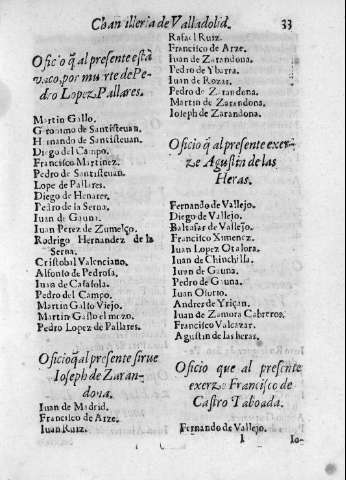 Chan illeria de Valladolid. 33
Oficio q̃ al presente está
vaco, por mu rte de Pe-
dro Lopez Pallares.
Martin Gallo.
Geronimo de Santisteuan.
Hernando de Santisteuan.
Diego del Campo.
Francisco Martinez.
Pedro de Santisteuan.
Lope de Pallares.
Diego de Henares.
Pedro de la Serna.
Iuan de Gauna.
Iuan Perez de Zumelço.
Rodrigo Hernandez de la
Serna.
Cristobal Valenciano.
Alfonso de Pedrosa.
Iuan de Casasola.
Pedro del Campo.
Martin Gallo Viejo.
Martin Gallo el mozo.
Pedro Lopez de Pallares.
Oficio q̃ al presente sirue
Ioseph de Zaran-
dona.
Iuan de Madrid.
Francisco de Arze.
Iuan Ruiz.
Rafael Ruiz.
Francisco de Arze.
Iuan de Zarandona.
Pedro de Ybarra.
Iuan de Rozas.
Pedro de Zarandena.
Martin de Zarandona.
Ioseph de Zarandona.
Oficio q̃ al presente exer-
ze Agustin de las
Heras.
Fernando de Vallejo.
Diego de Vallejo.
Baltasar de Vallejo.
Francisco Ximenez.
Iuan Lopez Otalora.
Iuan de Chinchilla.
Iuan de Gauna.
Pedro de Gauna.
Iuan Osorio.
Andres de Yriçan.
Iuan de Zamora Cabreros.
Francisco Valcazar.
Agustin de las heras.
Oficio que al presente
exerze Francisco de
Castro Taboada.
Fernando de Vallejo.
I Io-